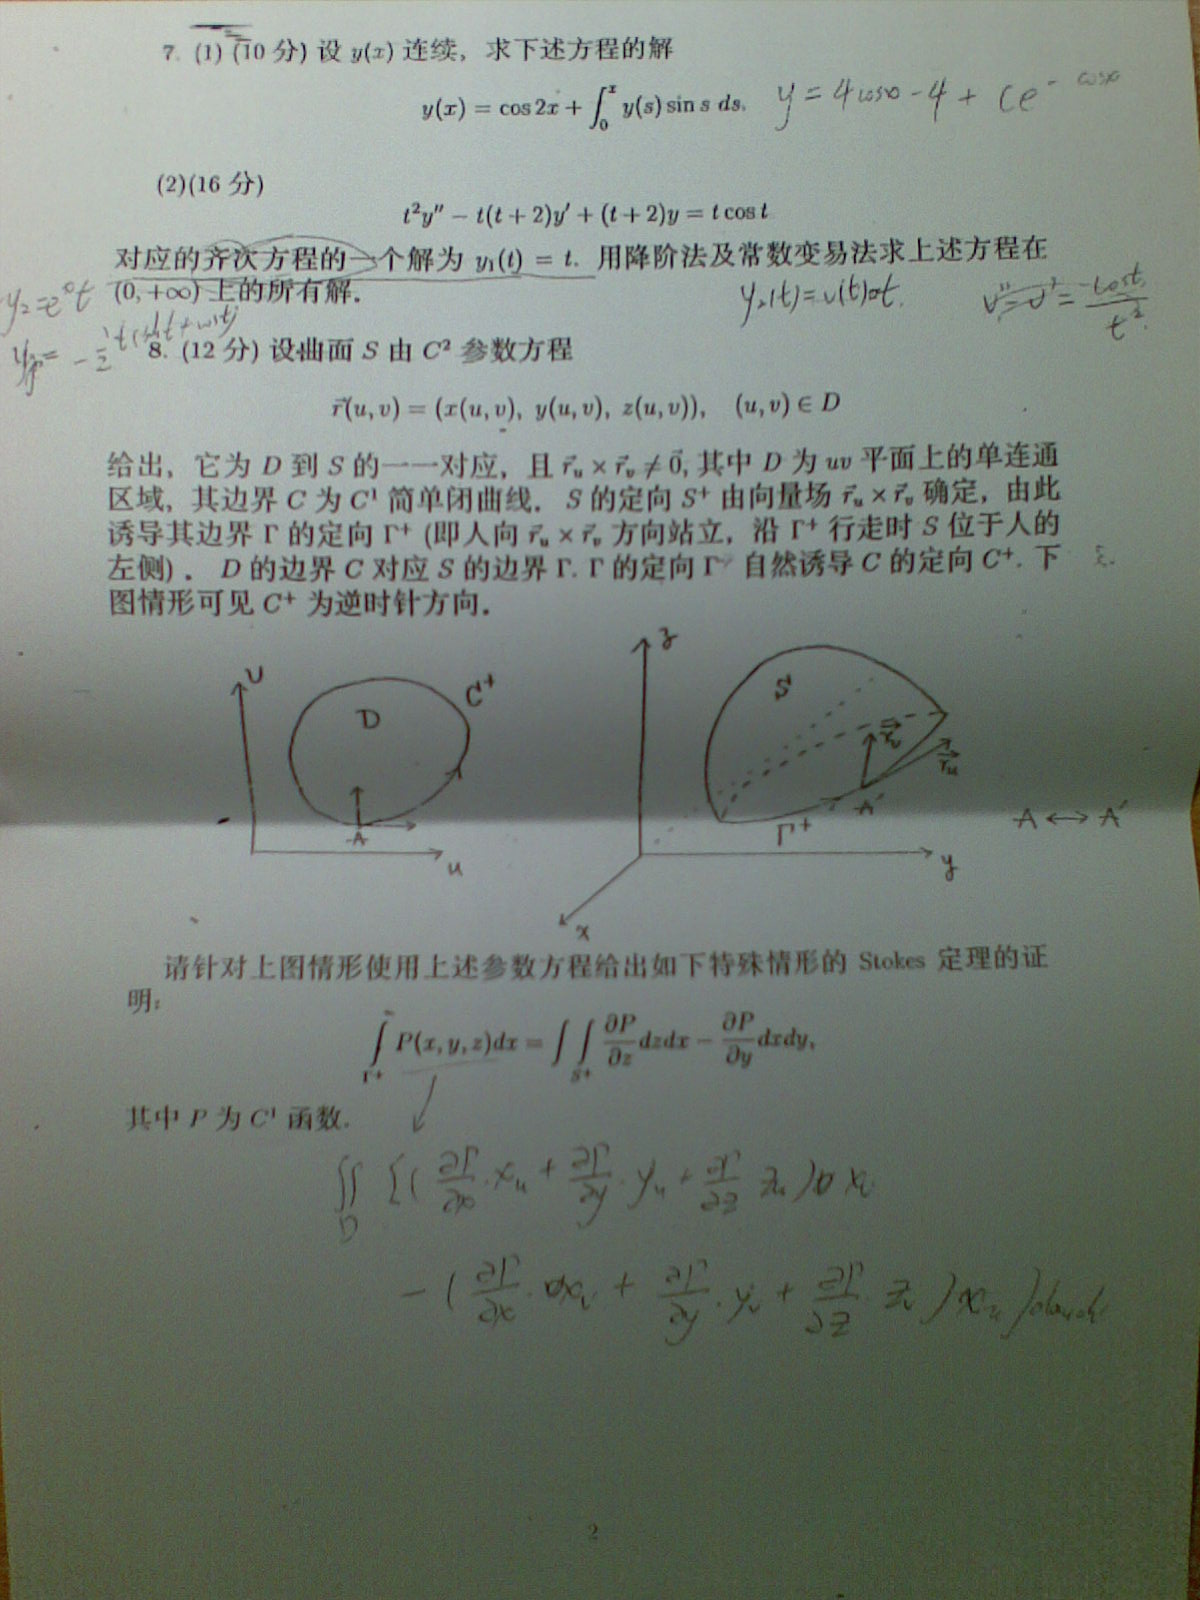 7. (1) (10 分) 设 y(x) 连续, 求下述方程的解
y(x) = cos 2x + ∫₀ˣ y(s) sin s ds. y = 4cosx - 4 + Ce^{-cosx}
(2)(16 分)
t²y″ − t(t + 2)y′ + (t + 2)y = t cos t
对应的齐次方程的一个解为 y₁(t) = t. 用降阶法及常数变易法求上述方程在
(0, +∞) 上的所有解.
y₂(t) = v(t)·t.
8. (12 分) 设曲面 S 由 C² 参数方程
r⃗(u, v) = (x(u, v), y(u, v), z(u, v)), (u, v) ∈ D
给出, 它为 D 到 S 的一一对应, 且 r⃗ᵤ × r⃗ᵥ ≠ 0⃗, 其中 D 为 uv 平面上的单连通
区域, 其边界 C 为 C¹ 简单闭曲线. S 的定向 S⁺ 由向量场 r⃗ᵤ × r⃗ᵥ 确定, 由此
诱导其边界 Γ 的定向 Γ⁺ (即人向 r⃗ᵤ × r⃗ᵥ 方向站立, 沿 Γ⁺ 行走时 S 位于人的
左侧) . D 的边界 C 对应 S 的边界 Γ. Γ 的定向 Γ⁺ 自然诱导 C 的定向 C⁺. 下
图情形可见 C⁺ 为逆时针方向.
υ
D
C⁺
A
u
z
S
r⃗ᵥ
r⃗ᵤ
A′
Γ⁺
y
x
A ↔ A′
请针对上图情形使用上述参数方程给出如下特殊情形的 Stokes 定理的证
明:
∫_{Γ⁺} P(x, y, z)dx = ∫∫_{S⁺} ∂P/∂z dzdx − ∂P/∂y dxdy,
其中 P 为 C¹ 函数.
∬_D {(∂P/∂x · xᵤ + ∂P/∂y · yᵤ + ∂P/∂z zᵤ) xᵥ
− (∂P/∂x · xᵥ + ∂P/∂y · yᵥ + ∂P/∂z · zᵥ) xᵤ} dudv
2